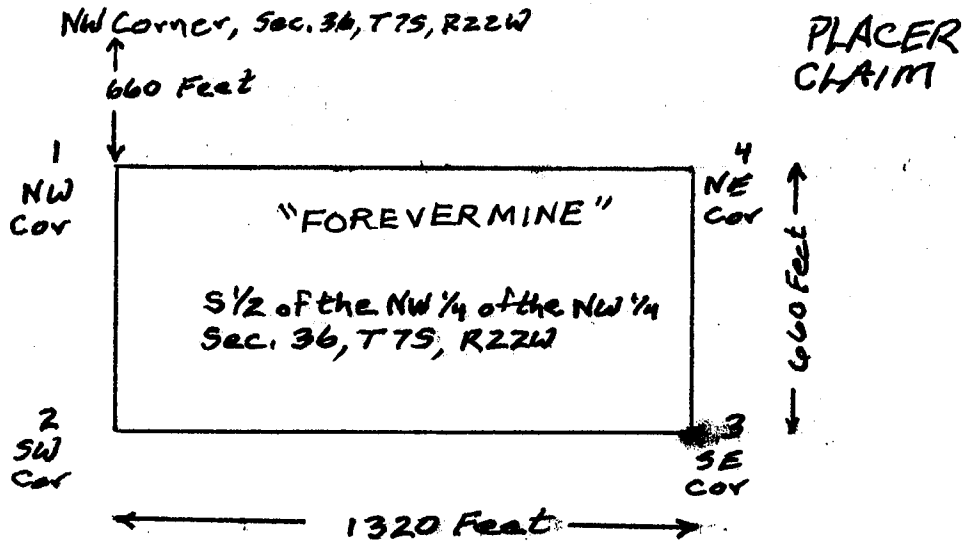 NW Corner, Sec. 36, T7S, R22W
PLACER
CLAIM
660 Feet
1
NW
Cor
4
NE
Cor
"FOREVERMINE"
S 1/2 of the NW 1/4 of the NW 1/4
Sec. 36, T7S, R22W
660 Feet
2
SW
Cor
3
SE
Cor
1320 Feet